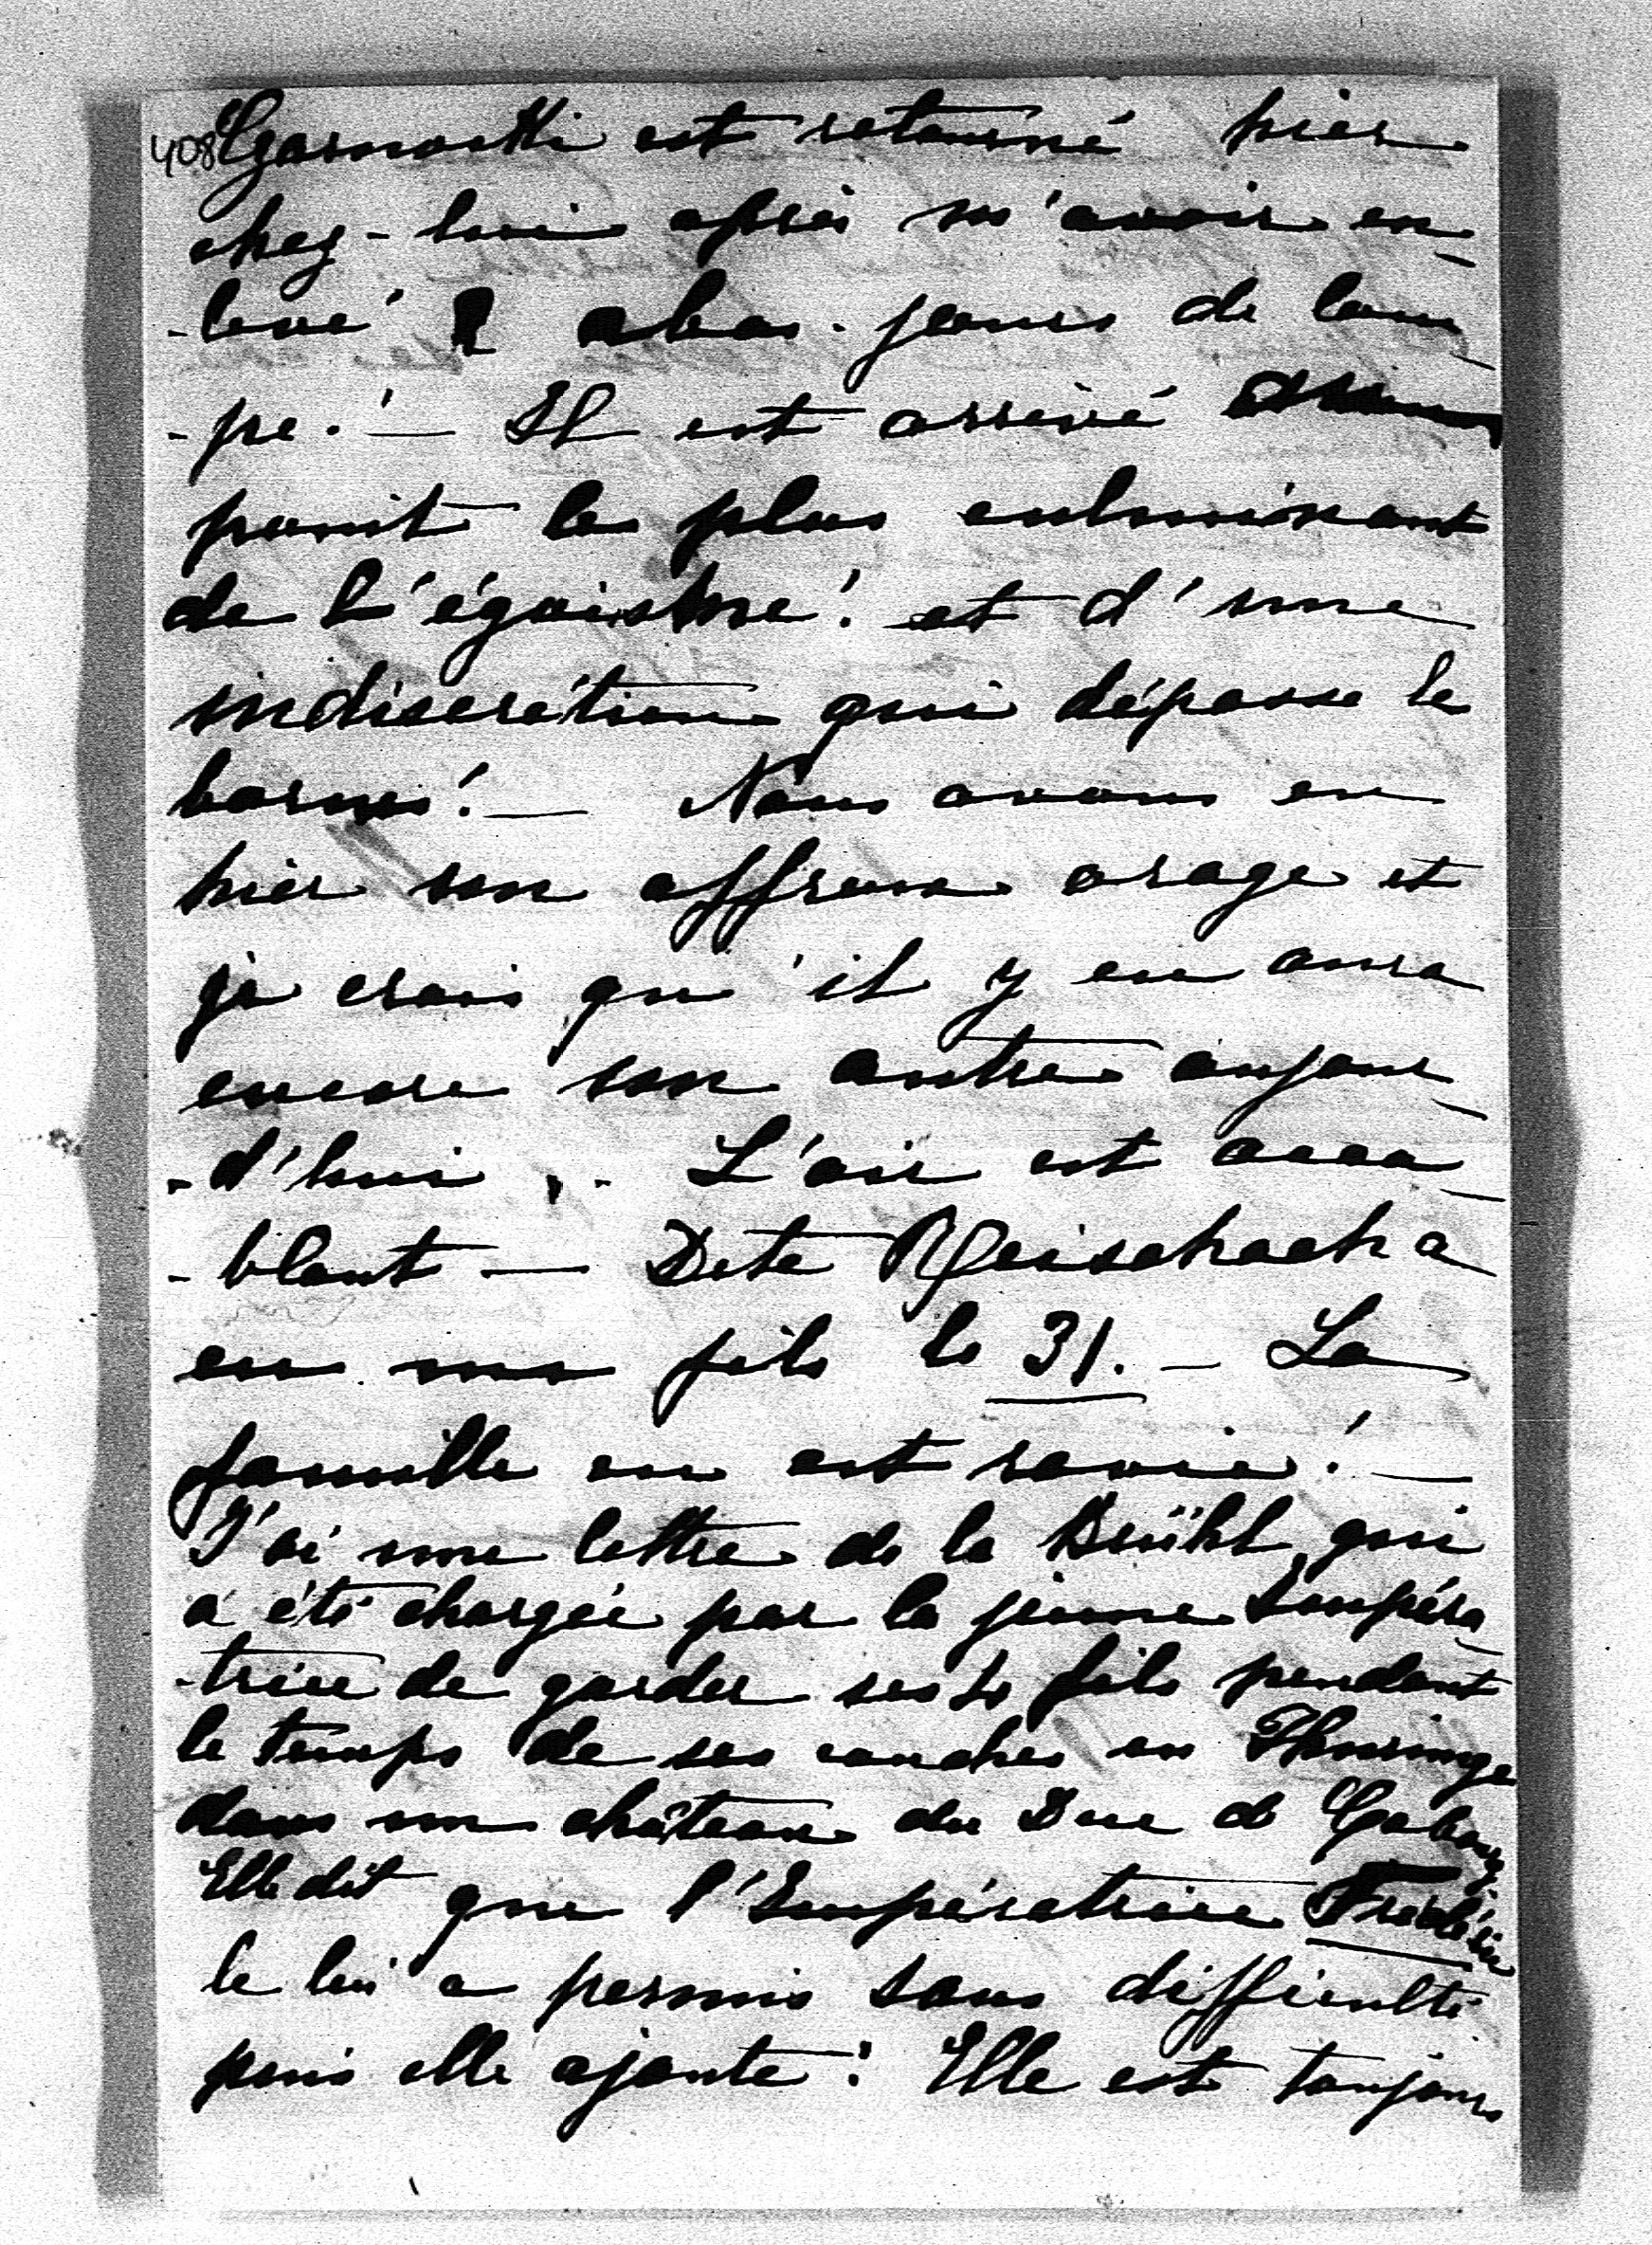 408 Czarnocki est retourné hier
chez-lui après m'avoir en-
-levé 2 abas-jours de lam-
-pe! — Il est arrivé
point le plus culminant
de l'égoisme! et d'une
indiscrétion qui dépasse le
bornes! — Nous avons eu
hier un affreux orage et
je crois qu'il y en aura
encore un autre aujour-
-d'hui. L'air est acca-
-blant — Dete Reischach a
eu un fils le 31. — La
famille en est ravie! —
J'ai une lettre de la Brühl qui
a été chargée par la jeune Impéra-
-trice de garder ses 4 fils pendant
le temps de ses couches en Thuringe
dans un château du Duc de Cobourg
Elle dit que l'Impératrice Frédéric
le lui a permis sans difficulté
puis elle ajoute: Elle est toujours